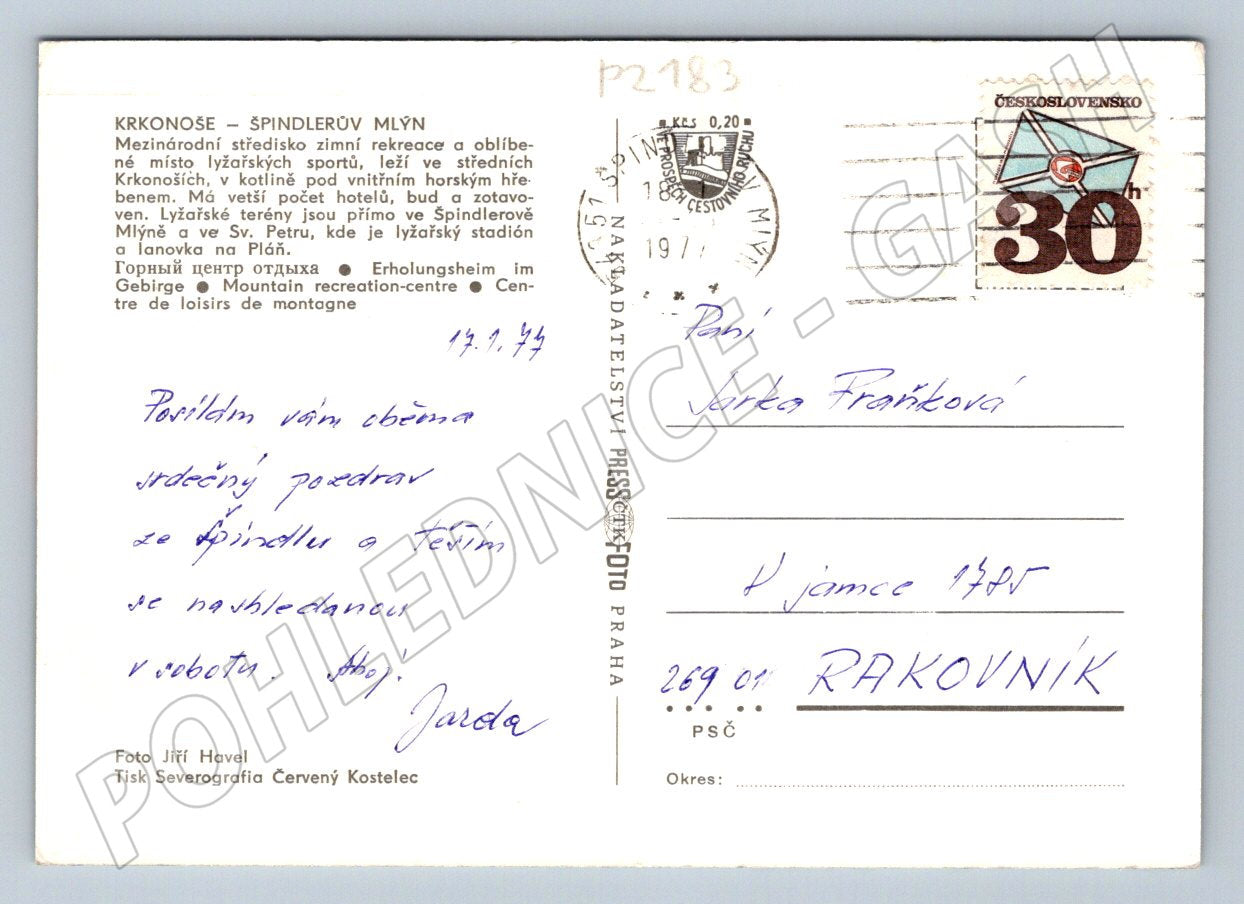 pz183
KRKONOŠE – ŠPINDLERŮV MLÝN
Mezinárodní středisko zimní rekreace a oblíbe-
né místo lyžařských sportů, leží ve středních
Krkonoších, v kotlině pod vnitřním horským hře-
benem. Má vetší počet hotelů, bud a zotavo-
ven. Lyžařské terény jsou přímo ve Špindlerově
Mlýně a ve Sv. Petru, kde je lyžařský stadión
a lanovka na Pláň.
Горный центр отдыха ● Erholungsheim im
Gebirge ● Mountain recreation-centre ● Cen-
tre de loisirs de montagne
17.1.77
Posílám vám oběma
srdečný pozdrav
ze Špindlu a těším
se nashledanou
v sobotu. Ahoj!
Jarda
Foto Jiří Havel
Tisk Severografia Červený Kostelec
NAKLADATELSTVÍ PRESSFOTO PRAHA
ČTK
Kčs 0,20
VE PROSPĚCH CESTOVNÍHO RUCHU
MLÝN
1977
ČESKOSLOVENSKO
30h
Paní
Jarka Fraňková
V jamce 1785
269 01 RAKOVNÍK
PSČ
Okres:
POHLEDNICE - GASH